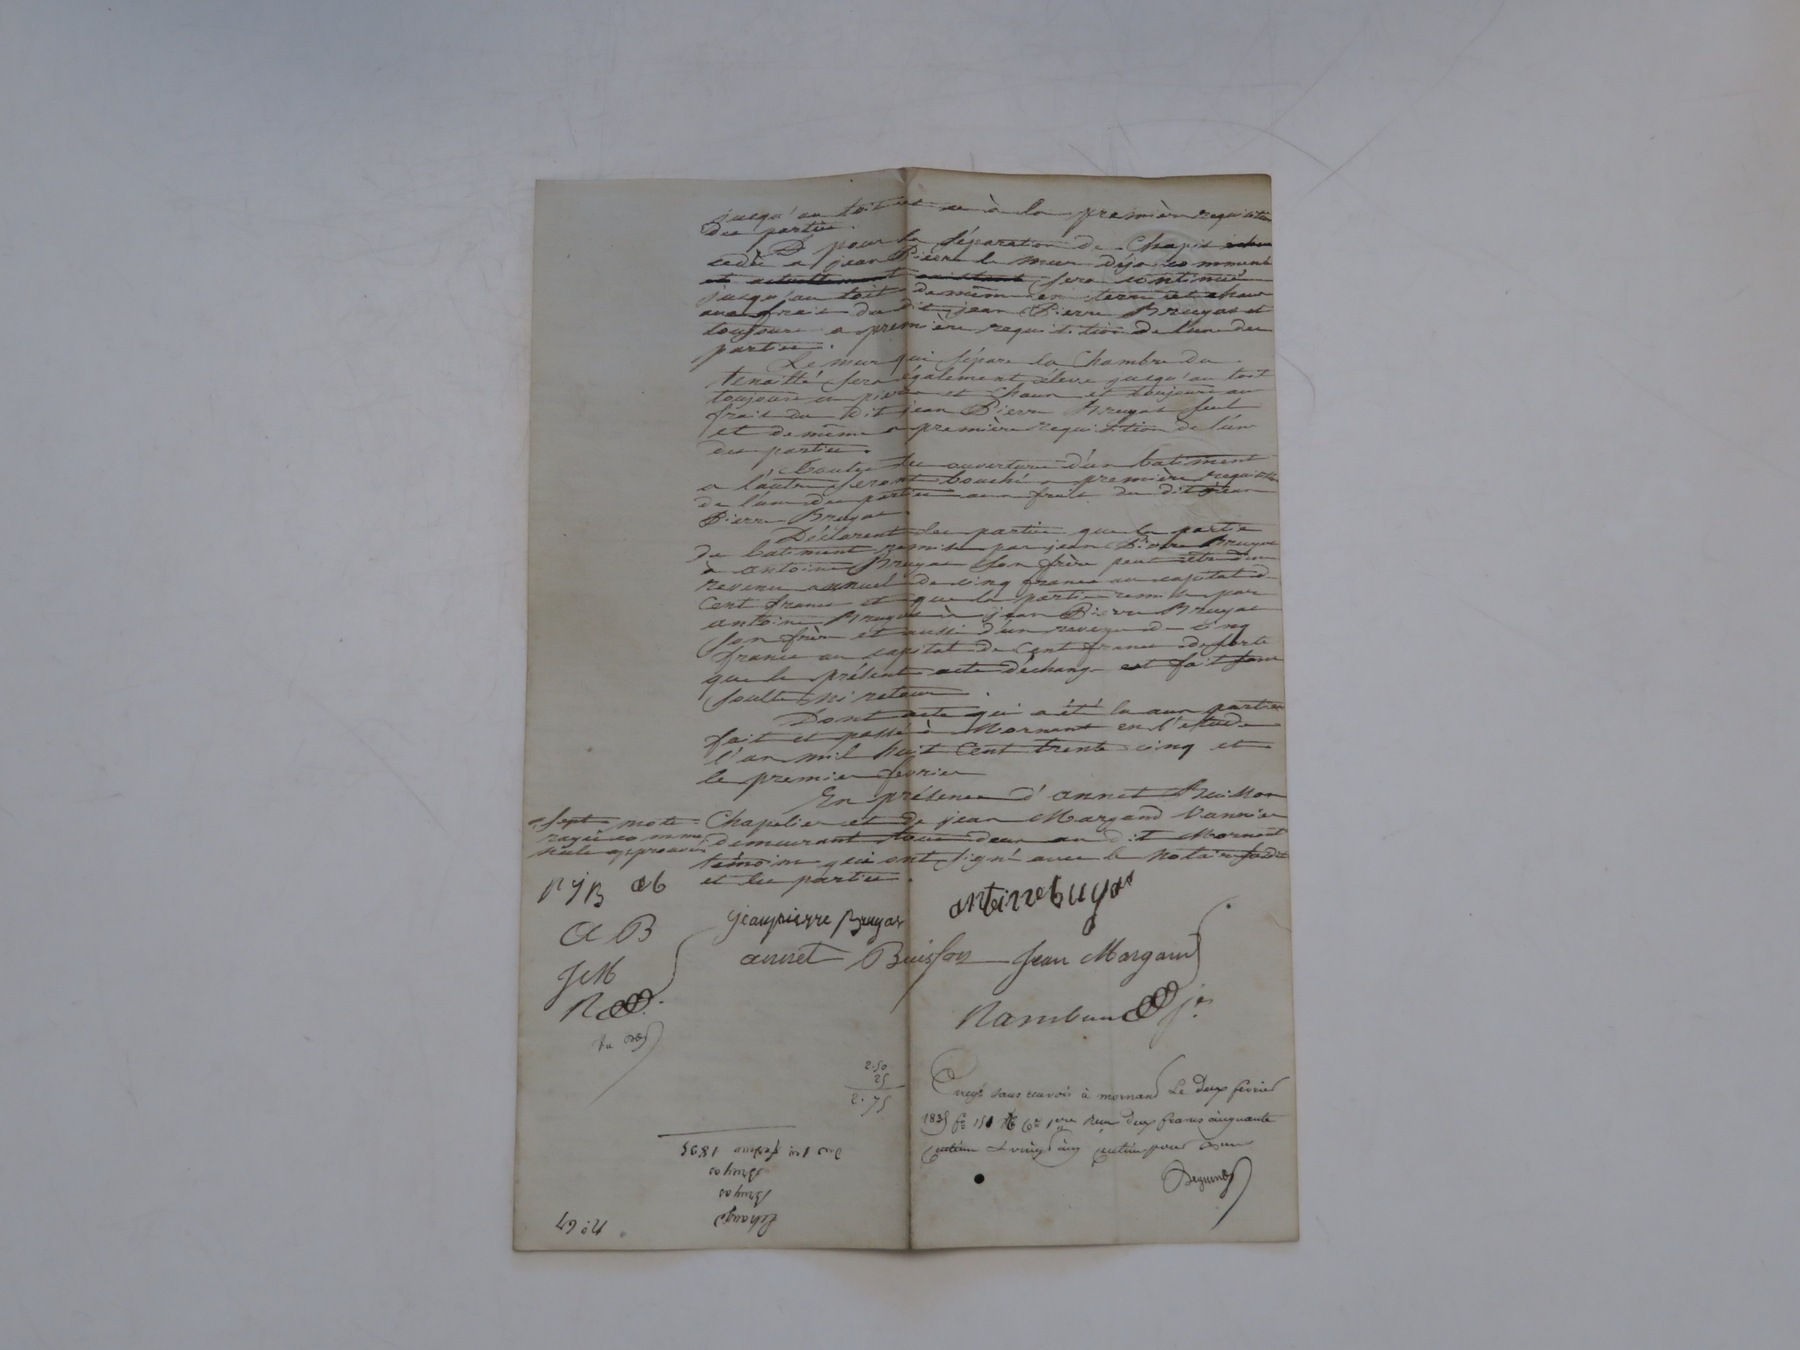 jusqu'au toit et ce à la première requisition
des parties.
Et pour la séparation du Chapit
cédé a jean Pierre le mur déja commencé
et actuellement existant sera continué
jusqu'au toit de même en terre et chaux
aux frais du dit jean Pierre Bruyas et
toujours a première requisition de l'une des
parties.
Le mur qui sépare la Chambre du
tenaillé sera également élevé jusqu'au toit
toujours en pierre et Chaux et toujours au
frais du dit jean Pierre Bruyas seul
et de même a première requisition de l'un
des parties.
Toutes les ouvertures d'un batiment
a l'autre seront bouché a première requisition
de l'une des parties aux frais du dit jean
Pierre Bruyas.
Déclarent les parties que la partie
du batiment remise par jean Pierre Bruyas
à antoine Bruyas son frère peut être d'un
revenu annuel de cinq francs au capital de
Cent francs et que la partie remise par
antoine Bruyas à jean Pierre Bruyas
son frère et aussi d'un revenu de cinq
francs au capital de Cent francs de sorte
que le présent acte d'échange est fait sans
soulte ni retour.
Dont acte qui a été lu aux parties
fait et passé à Mornant en l'etude
l'an mil huit Cent trente cinq et
le premier fevrier
En présence d'annet Buisson
Chapelier et de jean Margand Vannier
demeurant tous deux au dit Mornant
témoins qui ont signé avec le Notaire susdit
et les parties.
Sept mots
rayés comme
nuls approuvés
PJB ab
aB
JM
R
jeanpierre Bruyas
antoinebruyas
annet Buisson
Jean Margand
Rambaud je
2.50
25
2.75
Enregé sans renvois à mornant Le deux fevrier
1835 fo 151 Ro Ce 1ere Reçu deux francs cinquante
centimes & vingt cinq centimes pour
Du 1er fevrier 1835
Bruyas
Bruyas
Echange
No 67